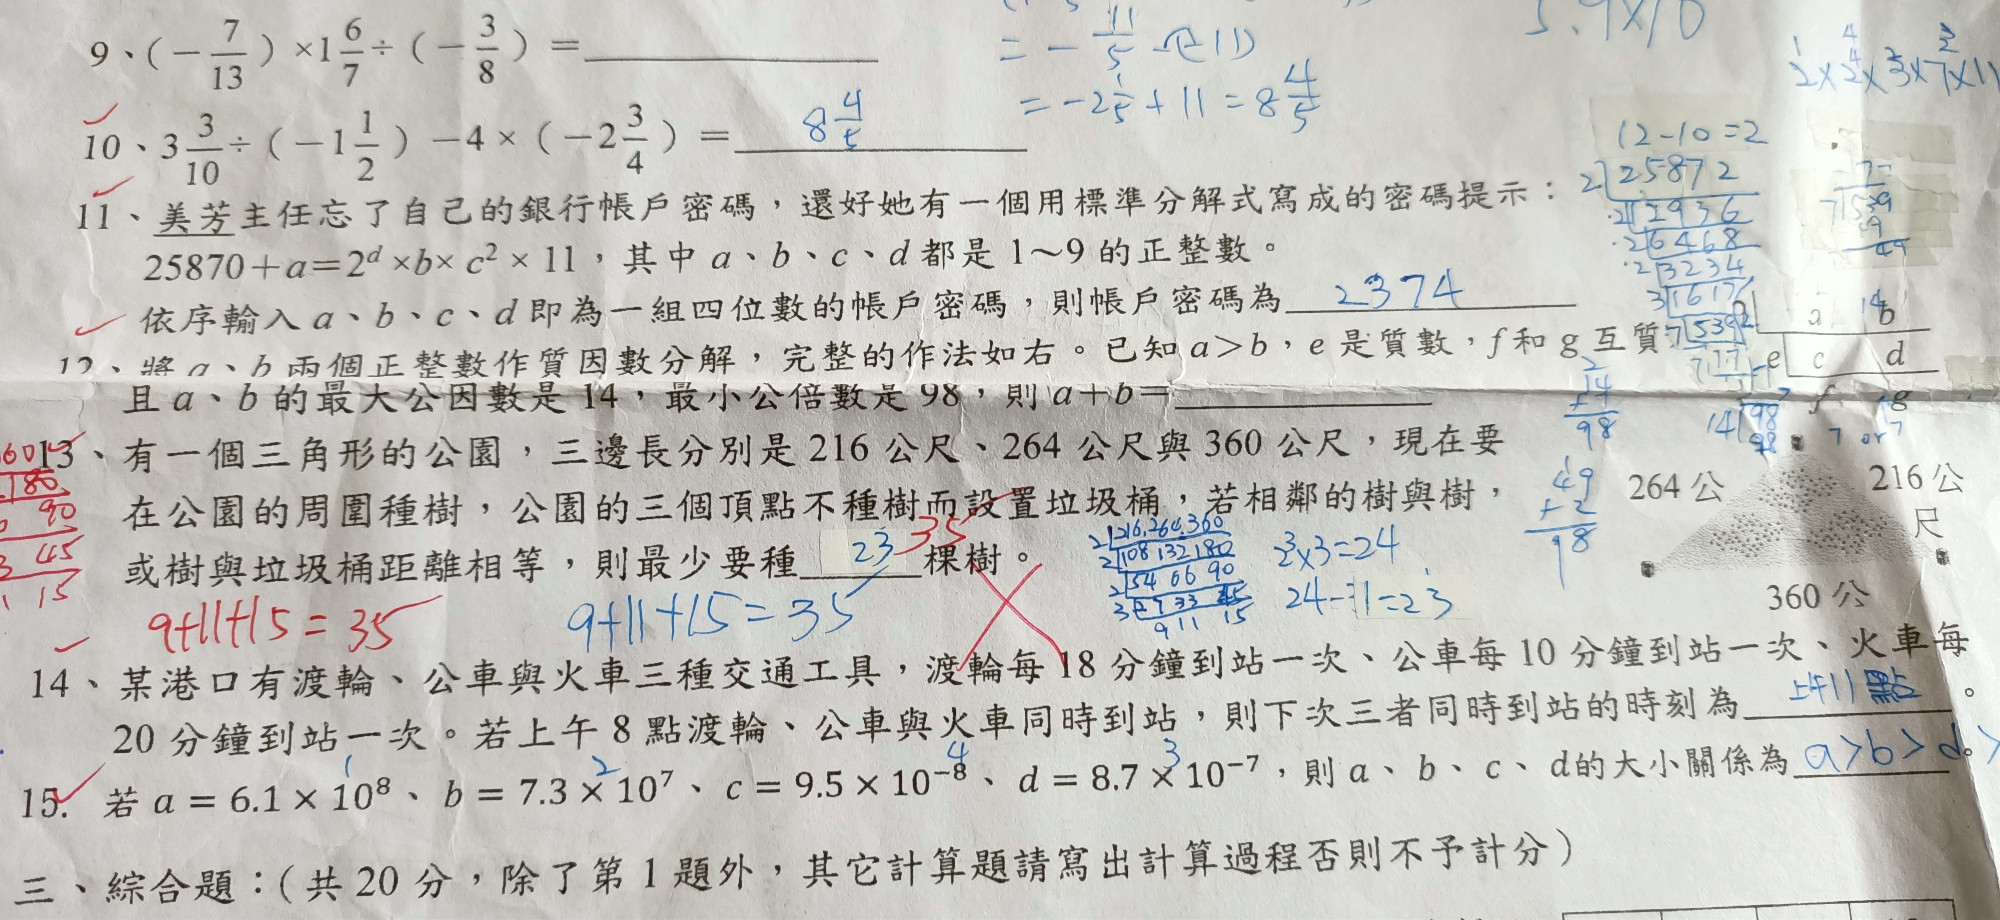 9、(−7/13)×1 6/7÷(−3/8)=
= −11/5 −(−11)
= −2 1/5 + 11 = 8 4/5
10、3 3/10÷(−1 1/2)−4×(−2 3/4)= 8 4/5
12−10=2
11、美芳主任忘了自己的銀行帳戶密碼，還好她有一個用標準分解式寫成的密碼提示：
25870+a=2^d×b×c²×11，其中 a、b、c、d 都是 1～9 的正整數。
依序輸入 a、b、c、d 即為一組四位數的帳戶密碼，則帳戶密碼為 2374
2 25872
2 12936
2 6468
2 3234
3 1617
7 539
7 77
12、將 a、b 兩個正整數作質因數分解，完整的作法如右。已知 a>b，e 是質數，f 和 g 互質，
且 a、b 的最大公因數是 14，最小公倍數是 98，則 a+b=
a b
e c d
f g
14 98
98
7 or 7
49
+2
98
13、有一個三角形的公園，三邊長分別是 216 公尺、264 公尺與 360 公尺，現在要
在公園的周圍種樹，公園的三個頂點不種樹而設置垃圾桶，若相鄰的樹與樹，
或樹與垃圾桶距離相等，則最少要種 23 35 棵樹。
264 公
216 公尺
360 公
180
90
3 45
15
2 216,264,360
2 108 132 180
2 54 66 90
3 27 33 45
9 11 15
2³×3=24
24−1=23
9+11+15=35
9+11+15=35
14、某港口有渡輪、公車與火車三種交通工具，渡輪每 18 分鐘到站一次、公車每 10 分鐘到站一次、火車每
20 分鐘到站一次。若上午 8 點渡輪、公車與火車同時到站，則下次三者同時到站的時刻為 上午11點。
1 2 4 3
15. 若 a = 6.1 × 10⁸、b = 7.3 × 10⁷、c = 9.5 × 10⁻⁸、d = 8.7 × 10⁻⁷，則 a、b、c、d的大小關係為 a>b>d>。
三、綜合題：(共 20 分，除了第 1 題外，其它計算題請寫出計算過程否則不予計分)